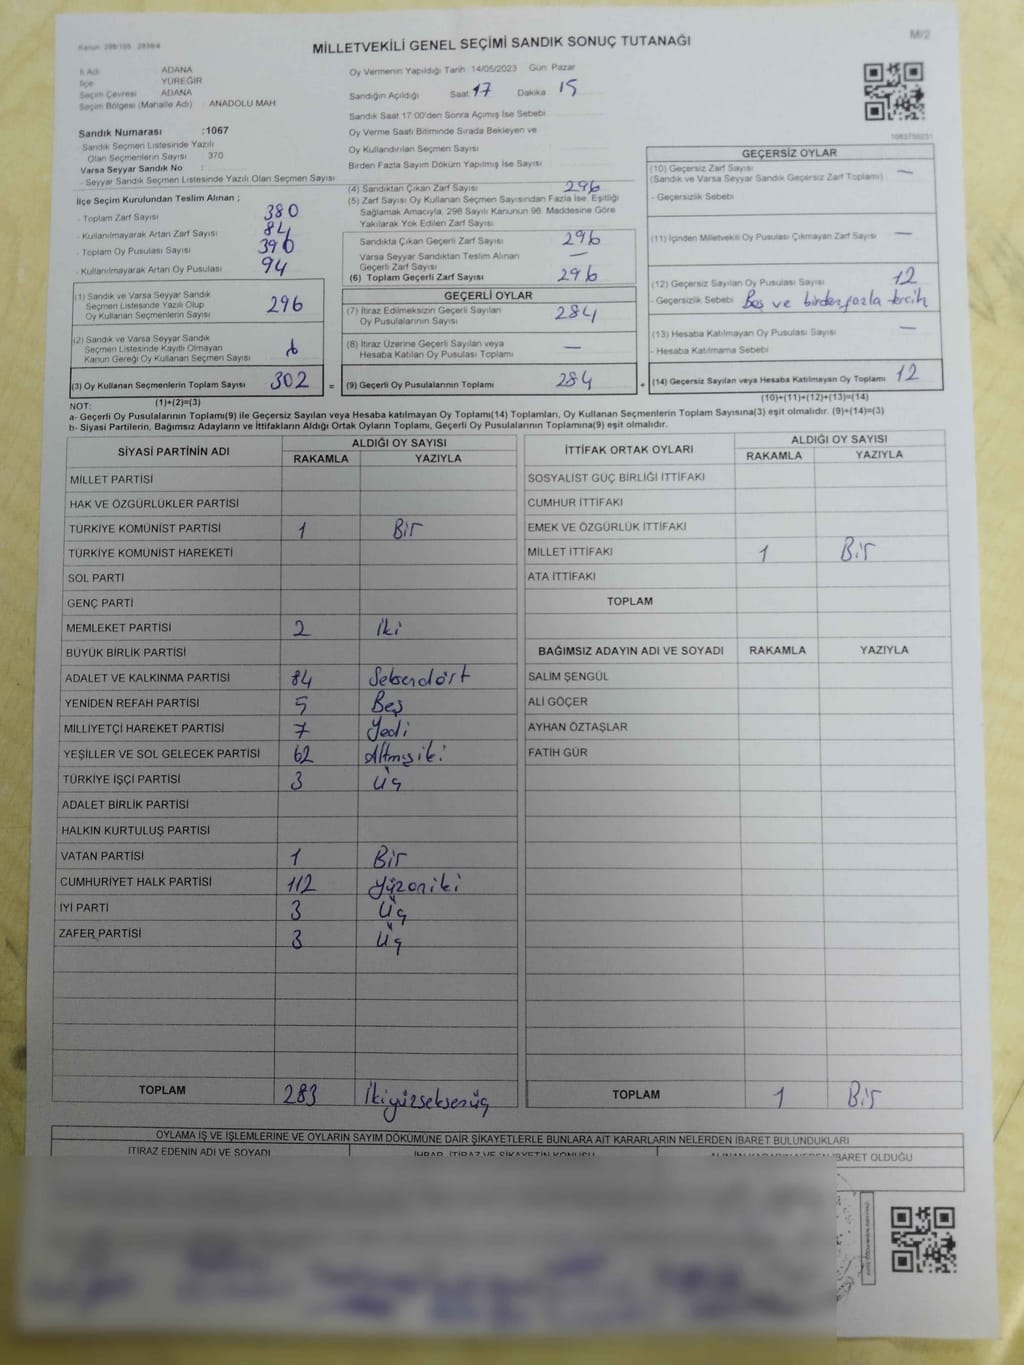 Kanun: 298/105 2839/4
M/2
MİLLETVEKİLİ GENEL SEÇİMİ SANDIK SONUÇ TUTANAĞI
İl Adı ADANA
İlçe YÜREĞİR
Seçim Çevresi ADANA
Seçim Bölgesi (Mahalle Adı) ANADOLU MAH
Sandık Numarası :1067
Sandık Seçmen Listesinde Yazılı
Olan Seçmenlerin Sayısı 370
Varsa Seyyar Sandık No :
- Seyyar Sandık Seçmen Listesinde Yazılı Olan Seçmen Sayısı
Oy Vermenin Yapıldığı Tarih 14/05/2023 Gün: Pazar
Sandığın Açıldığı Saat 17 Dakika 15
Sandık Saat 17:00'den Sonra Açımış İse Sebebi
Oy Verme Saati Bitiminde Sırada Bekleyen ve
Oy Kullandırılan Seçmen Sayısı
Birden Fazla Sayım Döküm Yapılmış İse Sayısı
İlçe Seçim Kurulundan Teslim Alınan ;
- Toplam Zarf Sayısı 380
- Kullanılmayarak Artan Zarf Sayısı 84
- Toplam Oy Pusulası Sayısı 390
- Kullanılmayarak Artan Oy Pusulası 94
(1) Sandık ve Varsa Seyyar Sandık
Seçmen Listesinde Yazılı Olup
Oy Kullanan Seçmenlerin Sayısı 296
(2) Sandık ve Varsa Seyyar Sandık
Seçmen Listesinde Kayıtlı Olmayan
Kanun Gereği Oy Kullanan Seçmen Sayısı
(3) Oy Kullanan Seçmenlerin Toplam Sayısı 302 =
(1)+(2)=(3)
(4) Sandıktan Çıkan Zarf Sayısı 296
(5) Zarf Sayısı Oy Kullanan Seçmen Sayısından Fazla İse, Eşitliği
Sağlamak Amacıyla, 298 Sayılı Kanunun 98. Maddesine Göre
Yakılarak Yok Edilen Zarf Sayısı
Sandıkta Çıkan Geçerli Zarf Sayısı 296
Varsa Seyyar Sandıktan Teslim Alınan
Geçerli Zarf Sayısı —
(6) Toplam Geçerli Zarf Sayısı 296
GEÇERLİ OYLAR
(7) İtiraz Edilmeksizin Geçerli Sayılan
Oy Pusulalarının Sayısı 284
(8) İtiraz Üzerine Geçerli Sayılan veya
Hesaba Katılan Oy Pusulası Toplamı —
(9) Geçerli Oy Pusulalarının Toplamı 284 +
GEÇERSİZ OYLAR
(10) Geçersiz Zarf Sayısı —
(Sandık ve Varsa Seyyar Sandık Geçersiz Zarf Toplamı)
- Geçersizlik Sebebi
(11) İçinden Milletvekili Oy Pusulası Çıkmayan Zarf Sayısı —
(12) Geçersiz Sayılan Oy Pusulası Sayısı 12
- Geçersizlik Sebebi Boş ve birden fazla tercih
(13) Hesaba Katılmayan Oy Pusulası Sayısı —
- Hesaba Katılmama Sebebi
(14) Geçersiz Sayılan veya Hesaba Katılmayan Oy Toplamı 12
(10)+(11)+(12)+(13)=(14)
NOT:
a- Geçerli Oy Pusulalarının Toplamı(9) ile Geçersiz Sayılan veya Hesaba katılmayan Oy Toplamı(14) Toplamları, Oy Kullanan Seçmenlerin Toplam Sayısına(3) eşit olmalıdır. (9)+(14)=(3)
b- Siyasi Partilerin, Bağımsız Adayların ve İttifakların Aldığı Ortak Oyların Toplamı, Geçerli Oy Pusulalarının Toplamına(9) eşit olmalıdır.
SİYASİ PARTİNİN ADI ALDIĞI OY SAYISI
RAKAMLA YAZIYLA
MİLLET PARTİSİ
HAK VE ÖZGÜRLÜKLER PARTİSİ
TÜRKİYE KOMÜNİST PARTİSİ 1 Bir
TÜRKİYE KOMÜNİST HAREKETİ
SOL PARTİ
GENÇ PARTİ
MEMLEKET PARTİSİ 2 İki
BÜYÜK BİRLİK PARTİSİ
ADALET VE KALKINMA PARTİSİ 84 Seksendört
YENİDEN REFAH PARTİSİ 5 Beş
MİLLİYETÇİ HAREKET PARTİSİ 7 Yedi
YEŞİLLER VE SOL GELECEK PARTİSİ 62 Altmışiki
TÜRKİYE İŞÇİ PARTİSİ 3 Üç
ADALET BİRLİK PARTİSİ
HALKIN KURTULUŞ PARTİSİ
VATAN PARTİSİ 1 Bir
CUMHURİYET HALK PARTİSİ 112 Yüzoniki
İYİ PARTİ 3 Üç
ZAFER PARTİSİ 3 Üç
TOPLAM 283 İkiyüzseksenüç
İTTİFAK ORTAK OYLARI ALDIĞI OY SAYISI
RAKAMLA YAZIYLA
SOSYALİST GÜÇ BİRLİĞİ İTTİFAKI
CUMHUR İTTİFAKI
EMEK VE ÖZGÜRLÜK İTTİFAKI
MİLLET İTTİFAKI 1 Bir
ATA İTTİFAKI
TOPLAM
BAĞIMSIZ ADAYIN ADI VE SOYADI RAKAMLA YAZIYLA
SALİM ŞENGÜL
ALİ GÖÇER
AYHAN ÖZTAŞLAR
FATİH GÜR
TOPLAM 1 Bir
OYLAMA İŞ VE İŞLEMLERİNE VE OYLARIN SAYIM DÖKÜMÜNE DAİR ŞİKAYETLERLE BUNLARA AİT KARARLARIN NELERDEN İBARET BULUNDUKLARI
İTİRAZ EDENİN ADI VE SOYADI İHBAR, İTİRAZ VE ŞİKAYETİN KONUSU ALINAN KARARIN NEDEN İBARET OLDUĞU